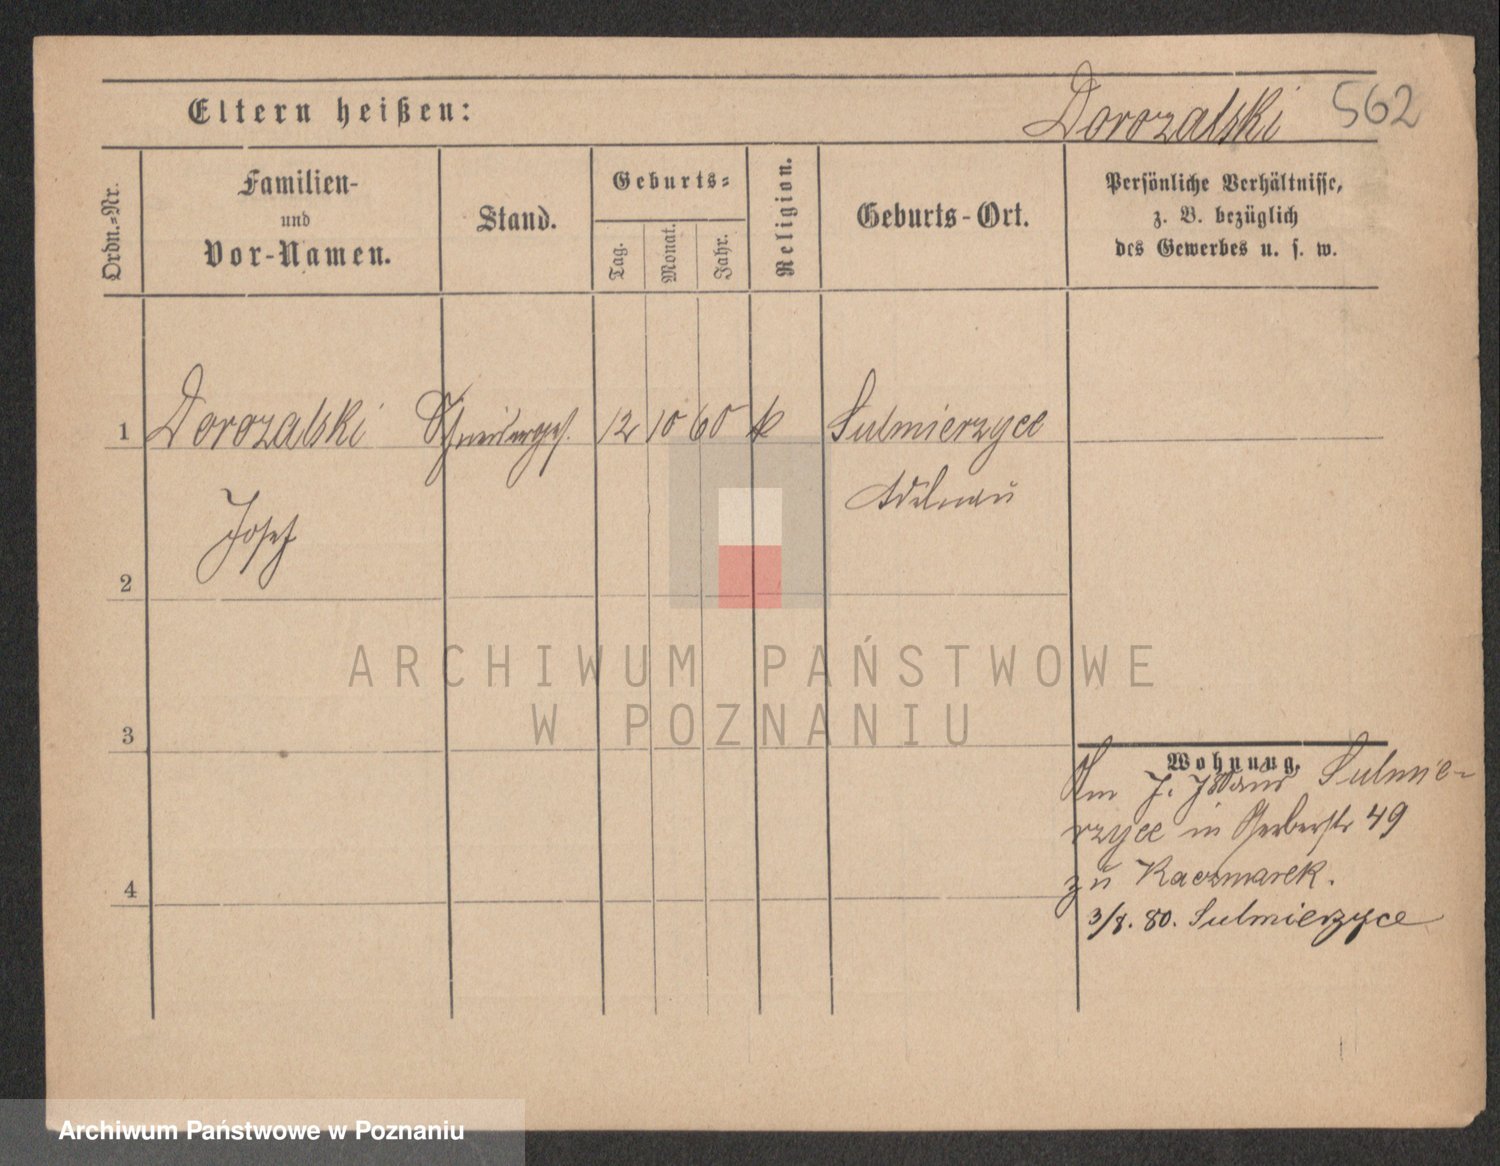 Eltern heißen:
Dorozalski 562
Ordn.-Nr.
Familien-
und
Vor-Namen.
Stand.
Geburts-
Tag.
Monat.
Jahr.
Religion.
Geburts-Ort.
Persönliche Verhältnisse,
z. B. bezüglich
des Gewerbes u. s. w.
1 Dorozalski Schneiderges. 12 10 60 k Sulmierzyce
Adelnau
Josef
2
ARCHIWUM PAŃSTWOWE
W POZNANIU
3
4
Wohnung.
Sulmie-
rzyce in Gerberstr 49
zu Kaczmarek.
3/8. 80. Sulmierzyce
Archiwum Państwowe w Poznaniu